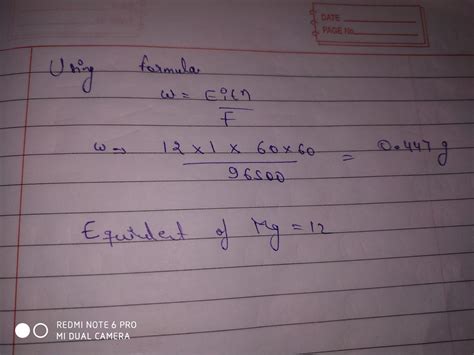 DATE
PAGE No.
Using formula
w = Eit
F
w → 12 x 1 x 60 x 60 = 0.447 g
96500
Equivalent of Mg = 12
REDMI NOTE 6 PRO
MI DUAL CAMERA